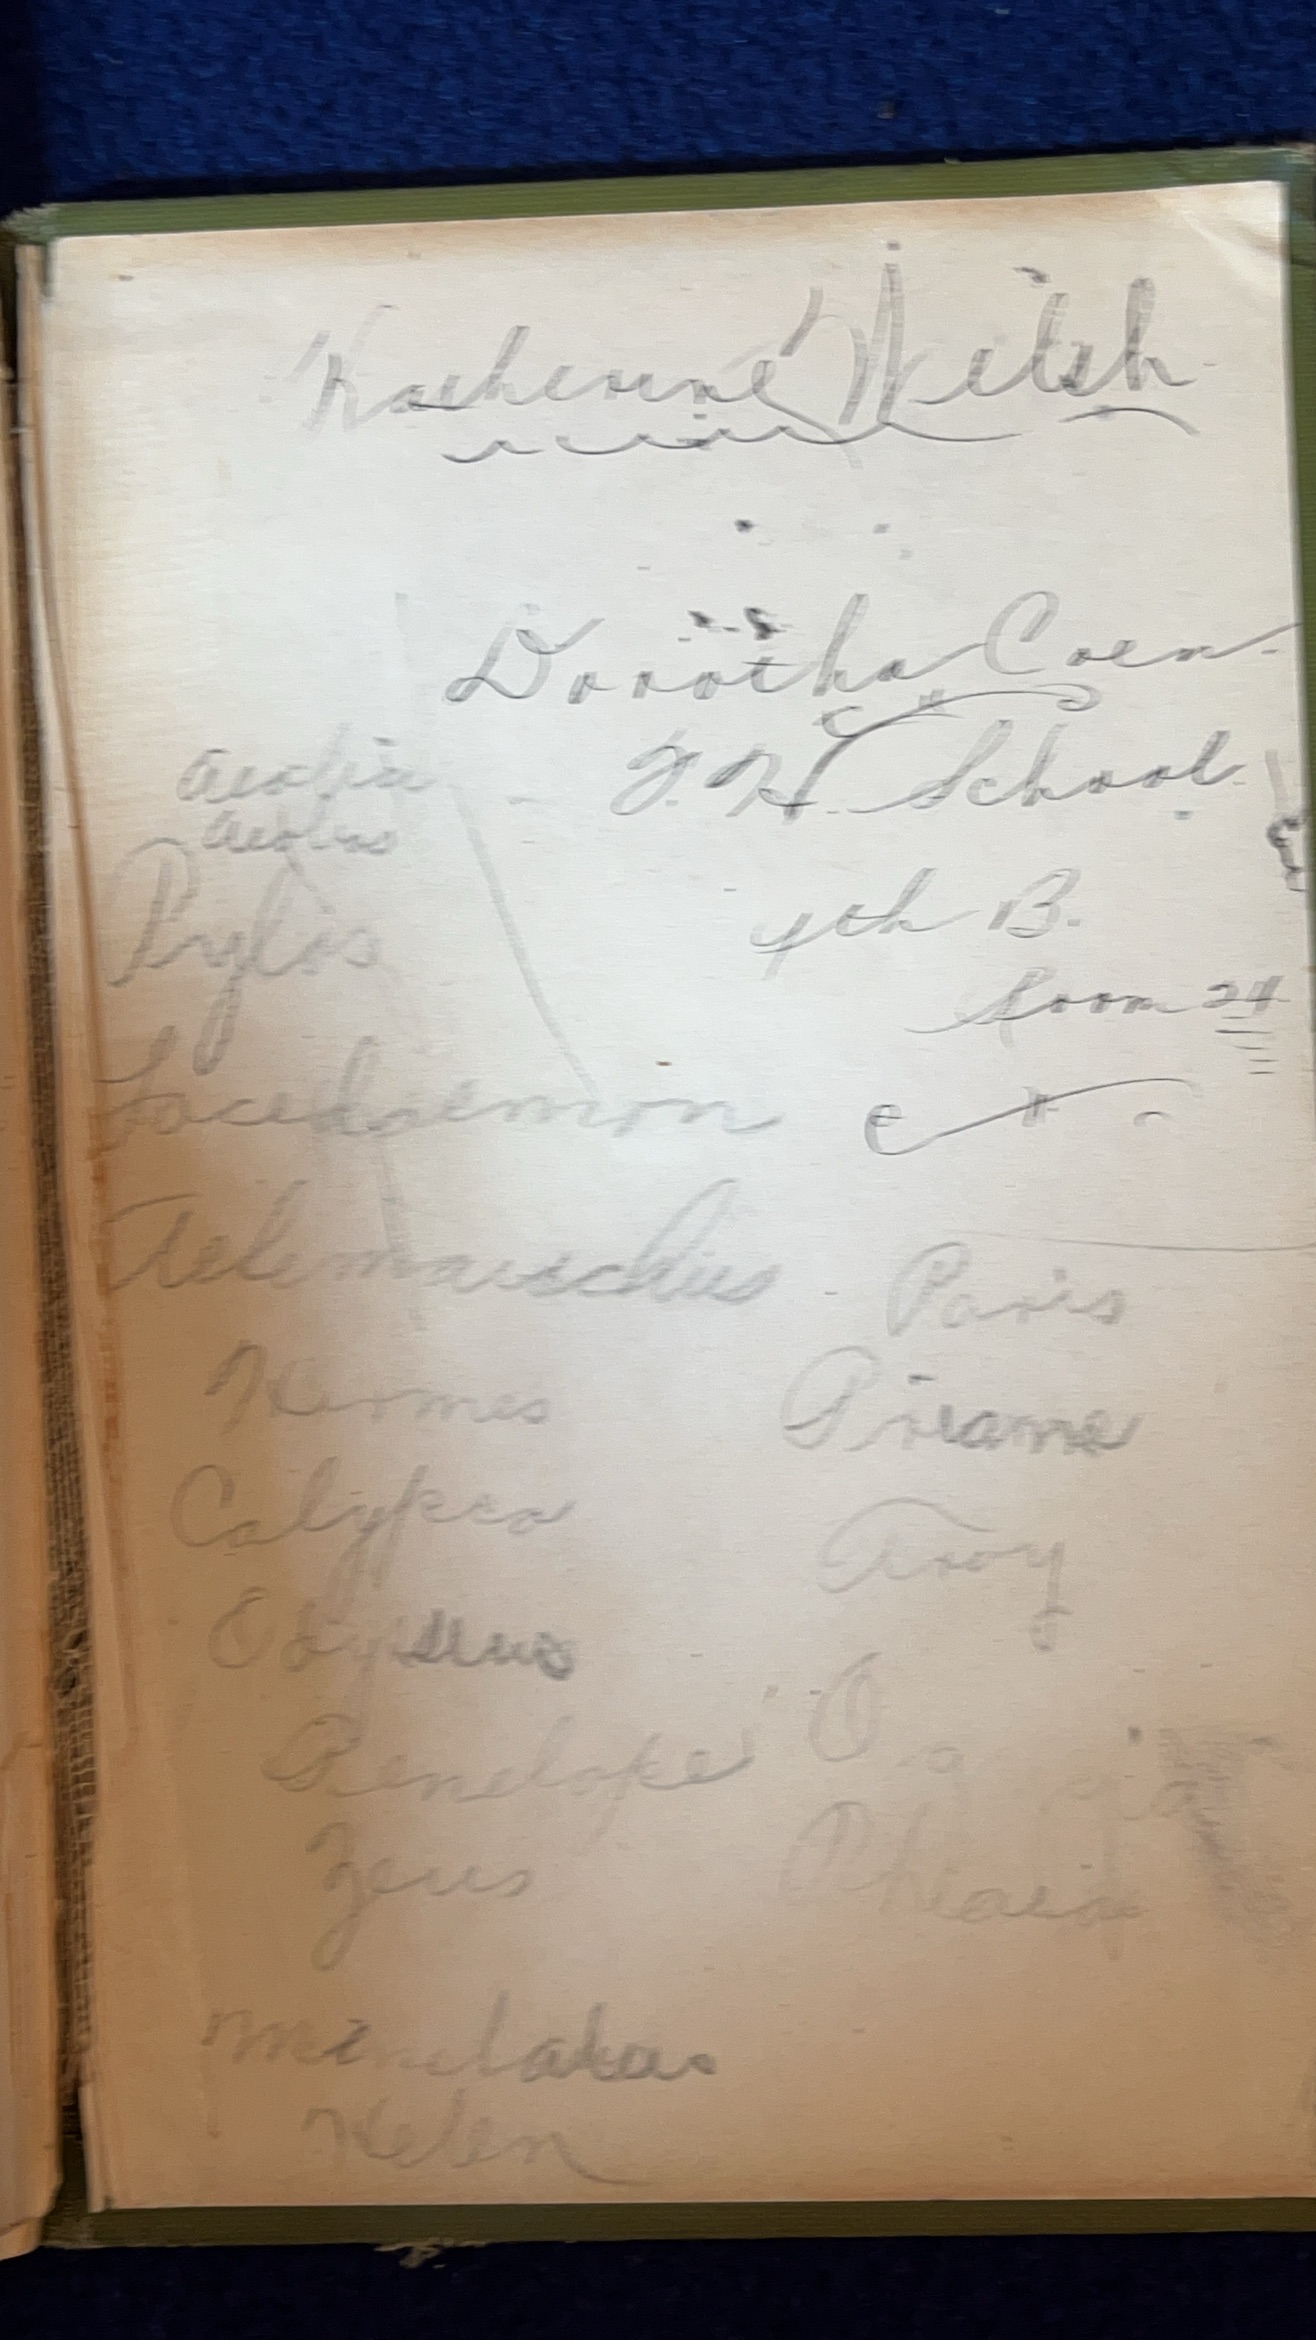 Katherine Welsh
Dorotha Coen.
J. H. School.
7th B.
Room 24
Aeolia
Aeolus
Pylos
Lacedaemon
Telemauschus
Hermes
Calypso
Odysseus
Penelope
Zeus
Menelaus
Helen
Paris
Priame
Troy